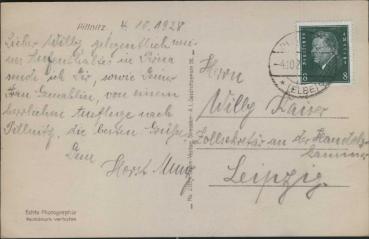 Pillnitz, 4.10.1928
Lieber Willy, gelegentlich mei-
nes in Pirna
sende ich Dir, sowie Deiner
Frau Gemahlin, von einem
herrlichen Ausfluge nach
Pillnitz, die besten Grüße.
Dein
Horst
Herrn
Willy Kaiser
Zollsekretär an der Handels-
kammer
Leipzig
DEUTSCHES REICH
8 8
-4.10.2
(ELBE)
Echte Photographie
Nachdruck verboten